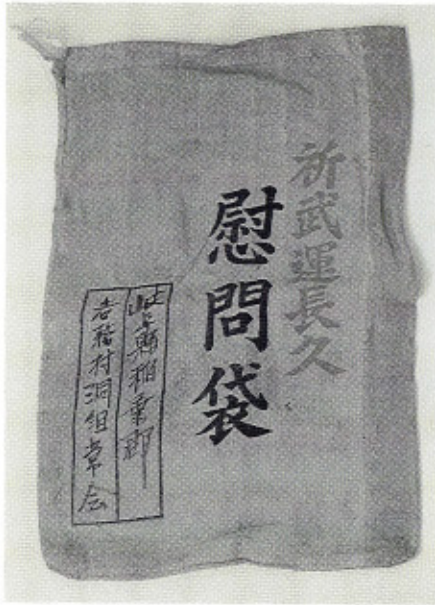 祈武運長久
慰問袋
岐阜縣稲葉郡
各務村洞組常会